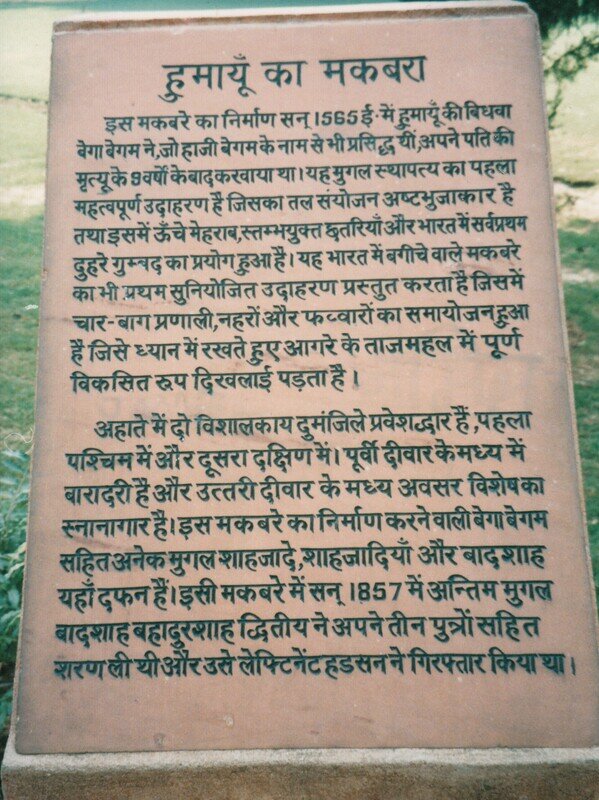 हुमायूँ का मकबरा
इस मकबरे का निर्माण सन् 1565 ई॰ में हुमायूँ की बिधवा
बेगा बेगम ने, जो हाजी बेगम के नाम से भी प्रसिद्ध थीं, अपने पति की
मृत्यू के 9 वर्षो के बाद करवाया था। यह मुगल स्थापत्य का पहला
महत्वपूर्ण उदाहरण है जिसका तल संयोजन अष्टभुजाकार है
तथा इसमें ऊँचे मेहराब, स्तम्भयुक्त छतरियाँ और भारत में सर्वप्रथम
दुहरे गुम्बद का प्रयोग हुआ है। यह भारत में बगीचे वाले मकबरे
का भी प्रथम सुनियोजित उदाहरण प्रस्तुत करता है जिसमें
चार-बाग प्रणाली, नहरों और फव्वारों का समायोजन हुआ
है जिसे ध्यान में रखते हुए आगरे के ताजमहल में पूर्ण
विकसित रुप दिखलाई पड़ता है।
अहाते में दो विशालकाय दुमंजिले प्रवेशद्धार हैं, पहला
पश्चिम में और दूसरा दक्षिण में। पूर्वी दीवार के मध्य में
बारादरी है और उत्तरी दीवार के मध्य अवसर विशेष का
स्नानागार है। इस मकबरे का निर्माण करने वाली बेगा बेगम
सहित अनेक मुगल शाहजादे, शाहजादियाँ और बादशाह
यहाँ दफन हैं। इसी मकबरे में सन् 1857 में अन्तिम मुगल
बादशाह बहादुरशाह द्वितीय ने अपने तीन पुत्रों सहित
शरण ली थी और उसे लेफ्टिनेंट हडसन ने गिरफ्तार किया था।